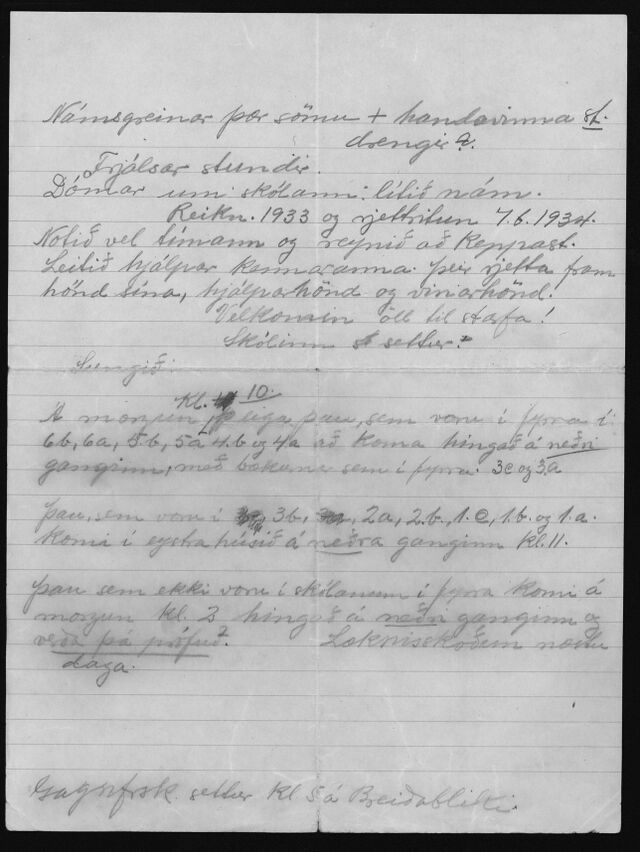 Námsgreinar þær sömu + handavinna st.
drengir 2.
Frjálsar stundir.
Dómar um skólann: lítið nám.
Reikn. 1933 og rjettritun 7.6.1934.
Notið vel tímann og reynið að keppast.
Leitið hjálpar kennaranna. Þeir rjetta fram
hönd sína, hjálparhönd og vinarhönd.
Velkomin öll til starfa!
Skólinn settur.
Sungið:
Kl. 10.
Á morgun eiga þau, sem voru í fyrra í
6b, 6a, 5b, 5a 4b og 4a að koma hingað á neðri
ganginn, með bækurnar sem í fyrra. 3c og 3a
Þau, sem voru í 3b, 2a, 2.b, 1.c, 1.b. og 1.a.
komi í eystra húsið á neðra ganginn kl. 11.
Þau sem ekki voru í skólanum í fyrra komi á
morgun kl. 3 hingað á neðri ganginn og
verða þá prófuð. Læknisskoðun næstu
daga.
Gagnfrsk. settur kl 5 á Breiðabliki.